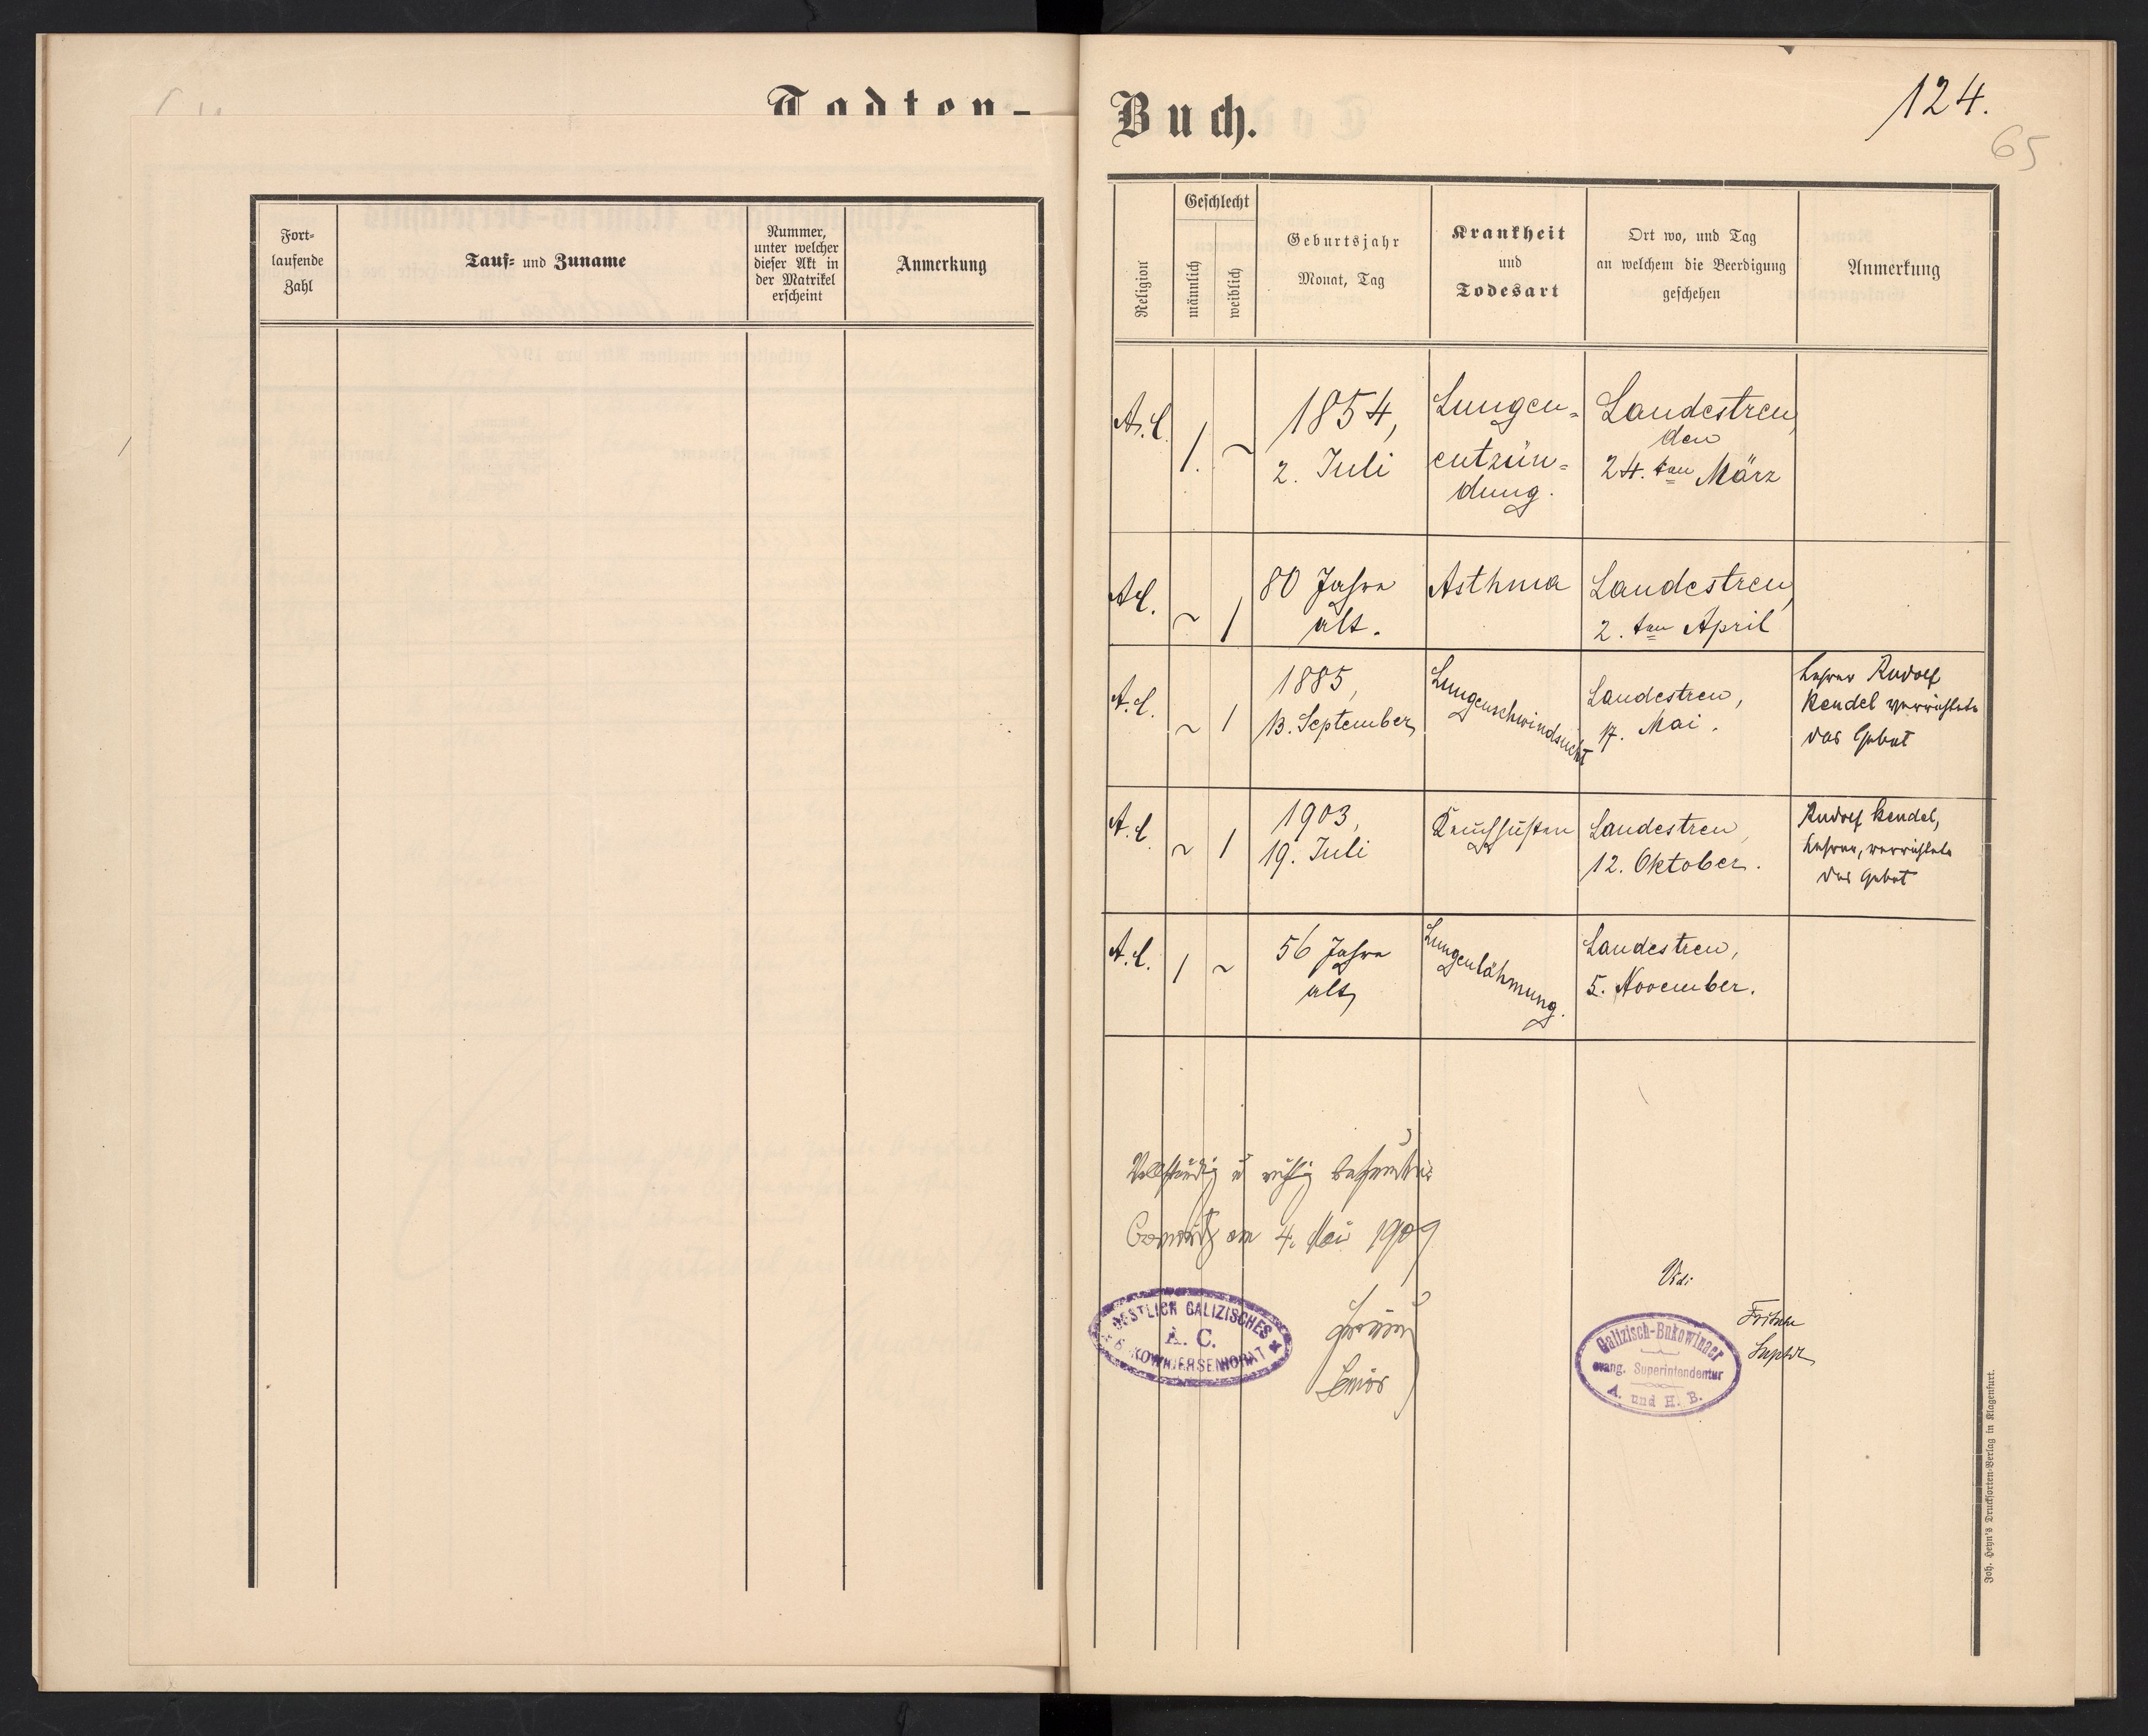 Todten-
Fort-
laufende
Zahl
Tauf- und Zuname
Nummer,
unter welcher
dieser Akt in
der Matrikel
erscheint
Anmerkung
Buch.
124.
65
Religion
Geschlecht
männlich
weiblich
Geburtsjahr
Monat, Tag
Krankheit
und
Todesart
Ort wo, und Tag
an welchem die Beerdigung
geschehen
Anmerkung
A.C. 1. ~
1854,
2. Juli
Lungen-
entzün-
dung.
Landestreu,
den
24. ten März
A.C. ~ 1
80 Jahre
alt.
Asthma
Landestreu,
2. ten April
A.C. ~ 1
1885,
13. September
Lungenschwindsucht
Landestreu,
17. Mai.
Lehrer Rudolf
Kendel verrichtete
das Gebet
A.C. ~ 1
1903,
19. Juli
Keuchhusten
Landestreu,
12. Oktober.
Rudolf Kendel,
Lehrer, verrichtete
das Gebet
A.C. 1 ~
56 Jahre
alt,
Lungenlähmung.
Landestreu,
5. November.
Vollständig u richtig befunden
am 4. Mai 1909
Senior
OESTLICH GALIZISCHES
A. C.
BUKOWINERSENIORAT
Vidi
Fritsche
Suptdt
Galizisch-Bukowinaer
evang. Superintendentur
A. und H. B.
Joh. Heyn's Drucksorten-Verlag in Klagenfurt.